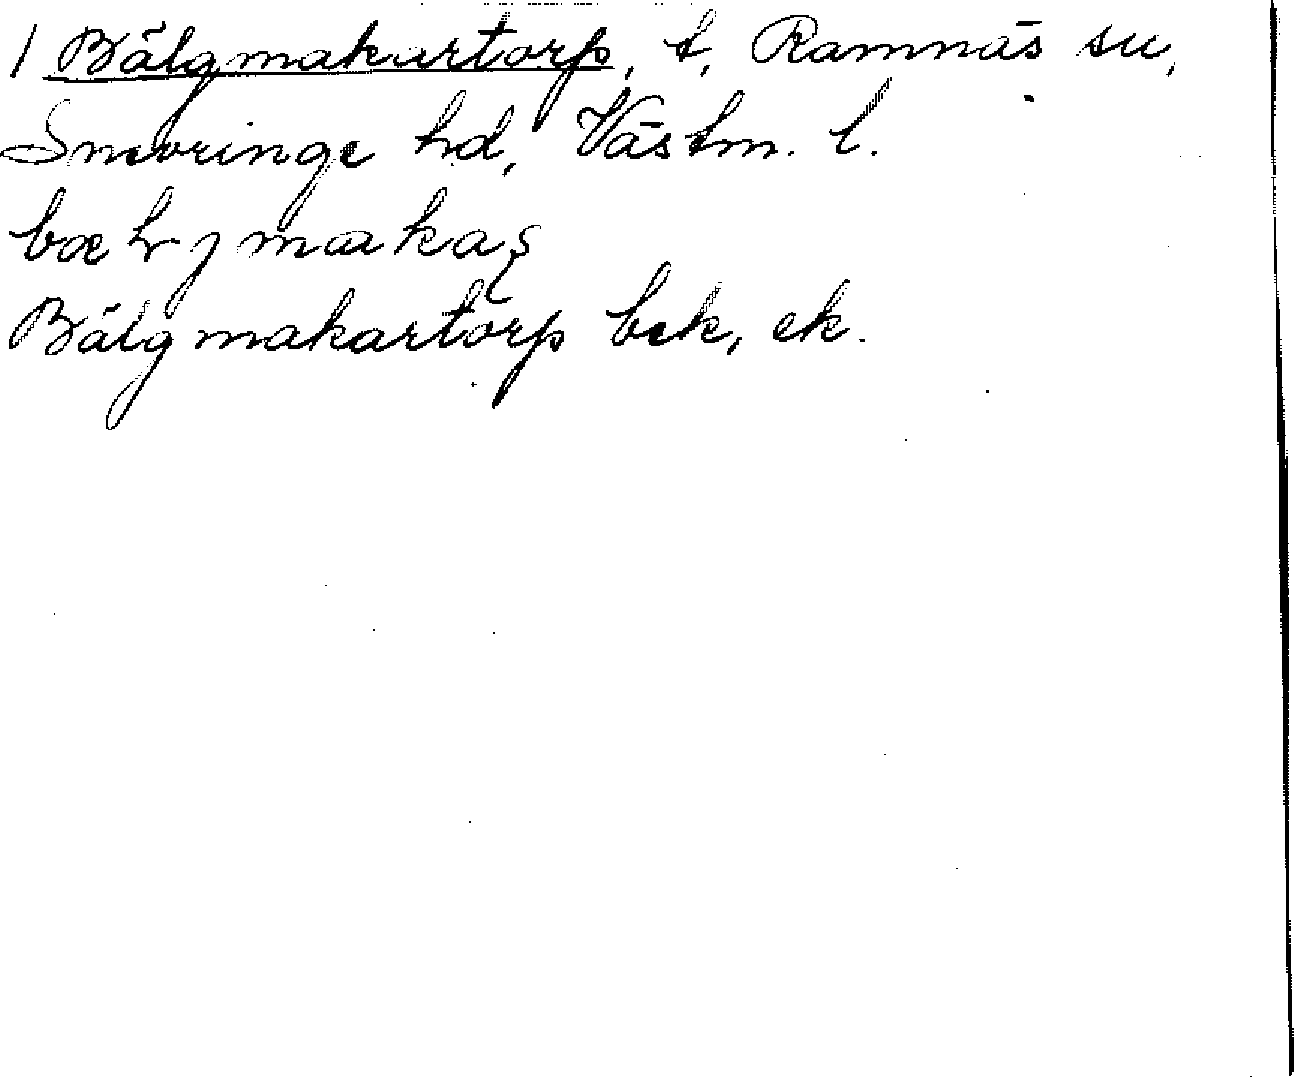 / Bälgmakartorp, t, Ramnäs sn,
Snevringe hd, Västm. l.
Bälgmakartorp bek, ek.